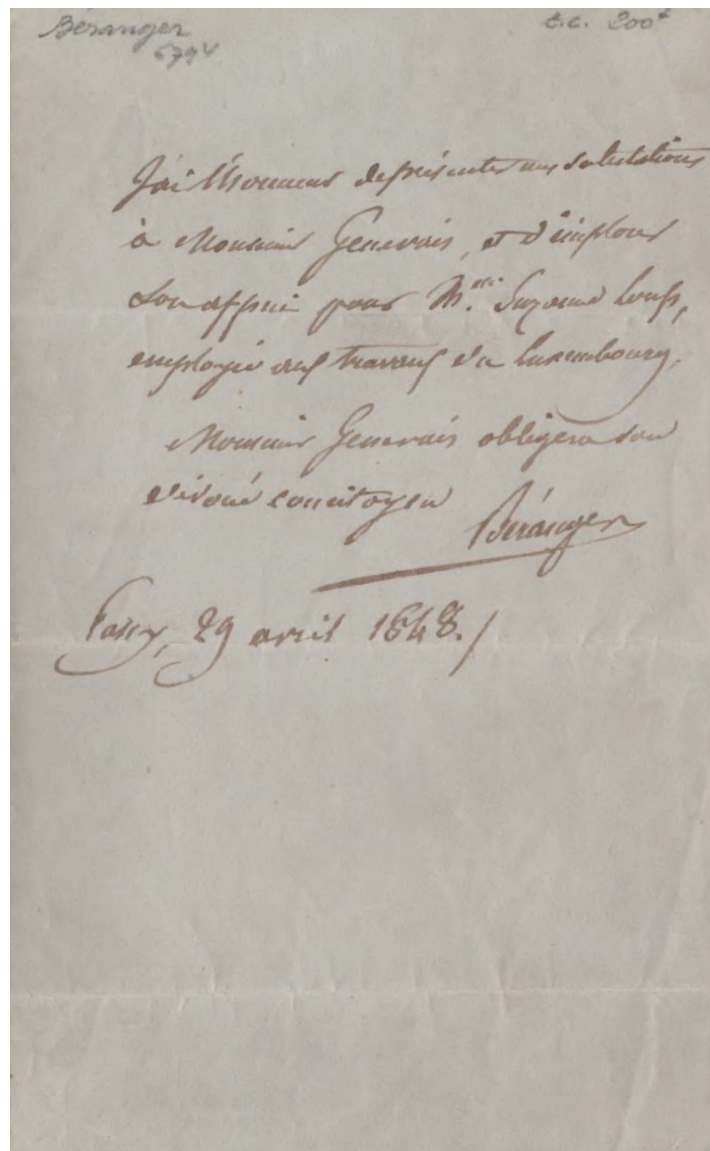 Béranger
6794
c.c. 200f
J'ai l'honneur de présenter mes salutations
à Monsieur Genevais, et d'implorer
son appui pour
employé aux travaux du Luxembourg.
Monsieur Genevais obligera son
dévoué concitoyen
Béranger
Passy, 29 avril 1848.